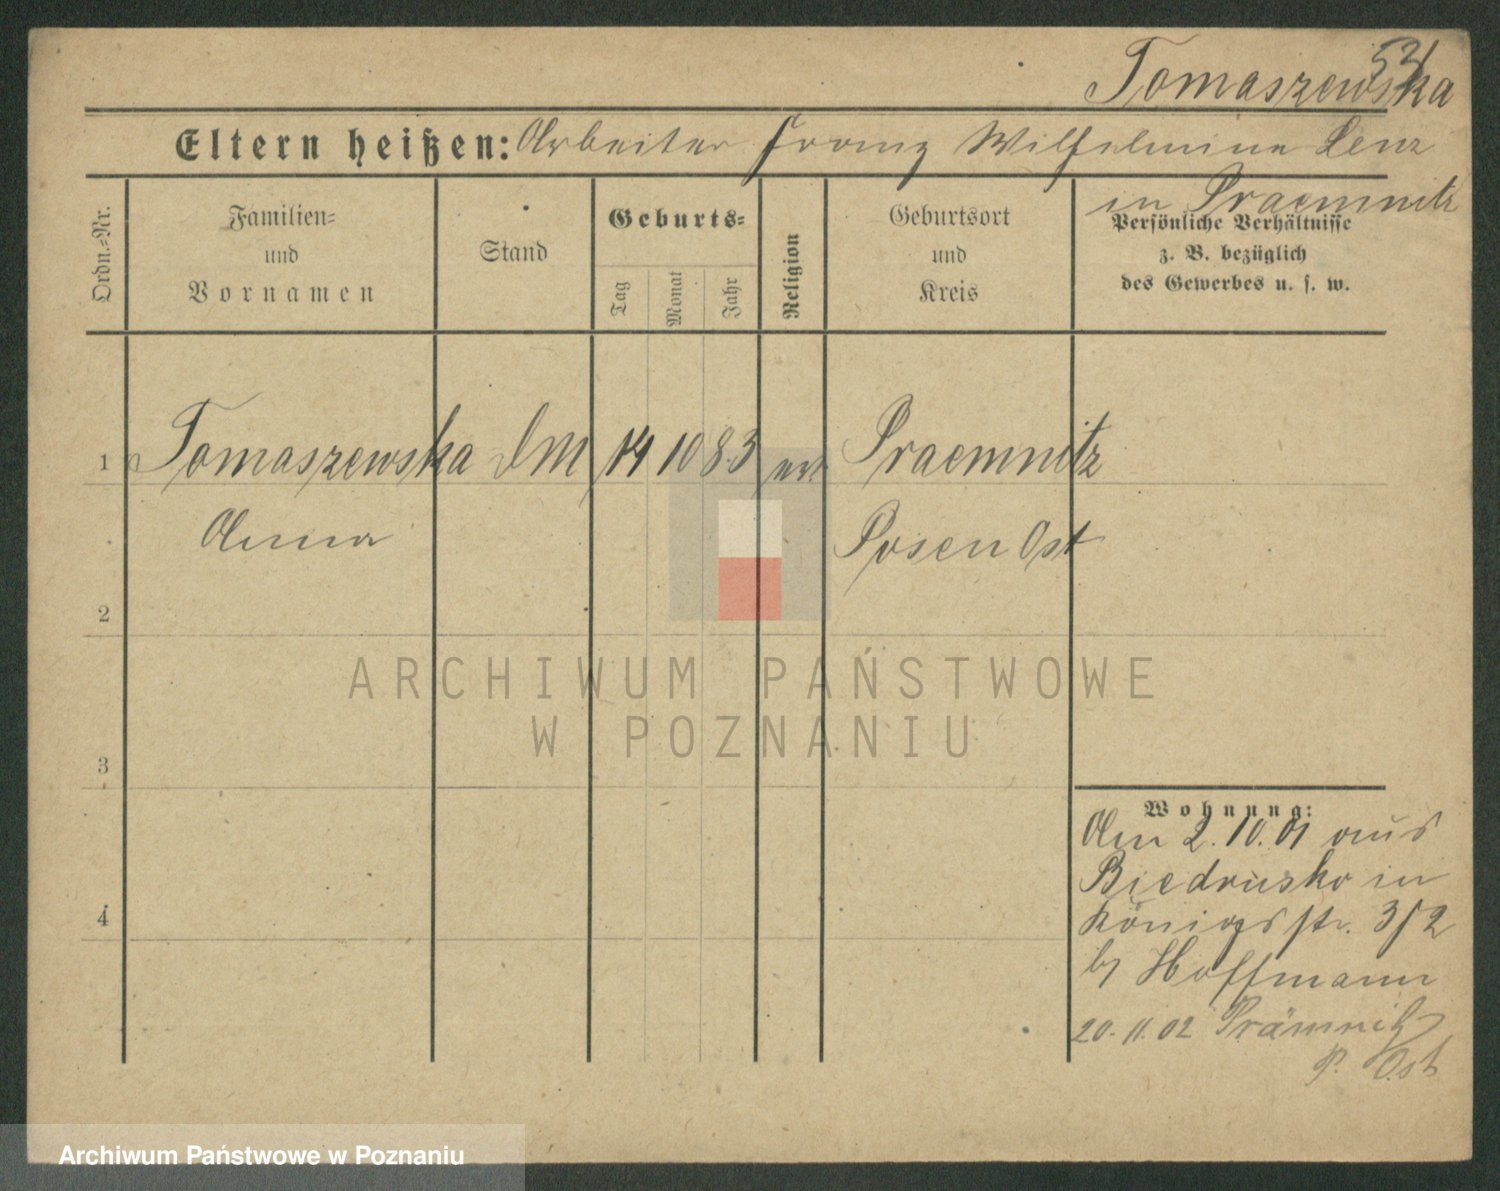 53
Tomaszewska
Eltern heißen: Arbeiter Franz Wilhelmine Lenz
in Praemnitz
Ordn.-Nr.
Familien- und Vornamen
Stand
Geburts-
Tag
Monat
Jahr
Religion
Geburtsort und Kreis
Persönliche Verhältnisse
z. B. bezüglich
des Gewerbes u. s. w.
1 Tomaszewska DM 14 10 83 ev. Praemnitz
Anna Posen Ost
2
3
4
Wohnung:
Am 2.10.01 aus
Biedrusko in
Königsstr. 3/2
by Hoffmann
20.11.02 Prämnitz
P. Ost
ARCHIWUM PAŃSTWOWE
W POZNANIU
Archiwum Państwowe w Poznaniu